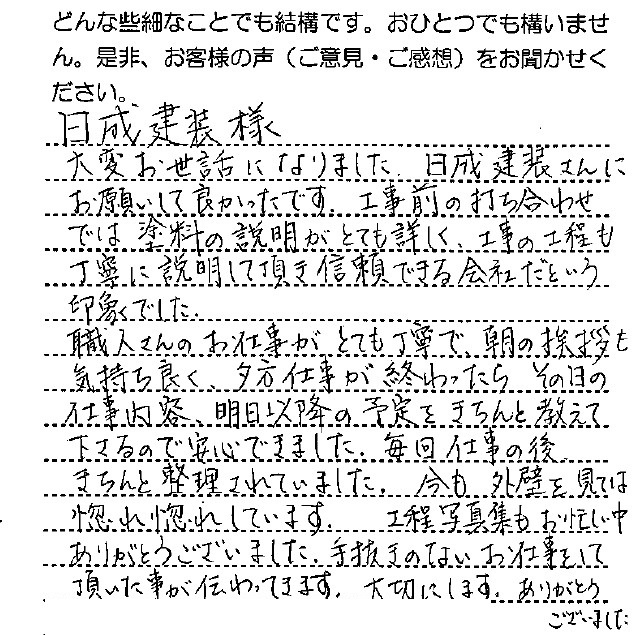 どんな些細なことでも結構です。おひとつでも構いませ
ん。是非、お客様の声（ご意見・ご感想）をお聞かせく
ださい。
日成建装様
大変お世話になりました。日成建装さんに
お願いして良かったです。工事前の打ち合わせ
では塗料の説明がとても詳しく、工事の工程も
丁寧に説明して頂き信頼できる会社だという
印象でした。
職人さんのお仕事がとても丁寧で、朝の挨拶も
気持ち良く、夕方仕事が終わったらその日の
仕事内容、明日以降の予定をきちんと教えて
下さるので安心できました。毎回仕事の後
きちんと整理されていました。今も外壁を見ては
惚れ惚れしています。工程写真集もお忙し中
ありがとうございました。手抜きのないお仕事をして
頂いた事が伝わってきます。大切にします。ありがとう
ございました